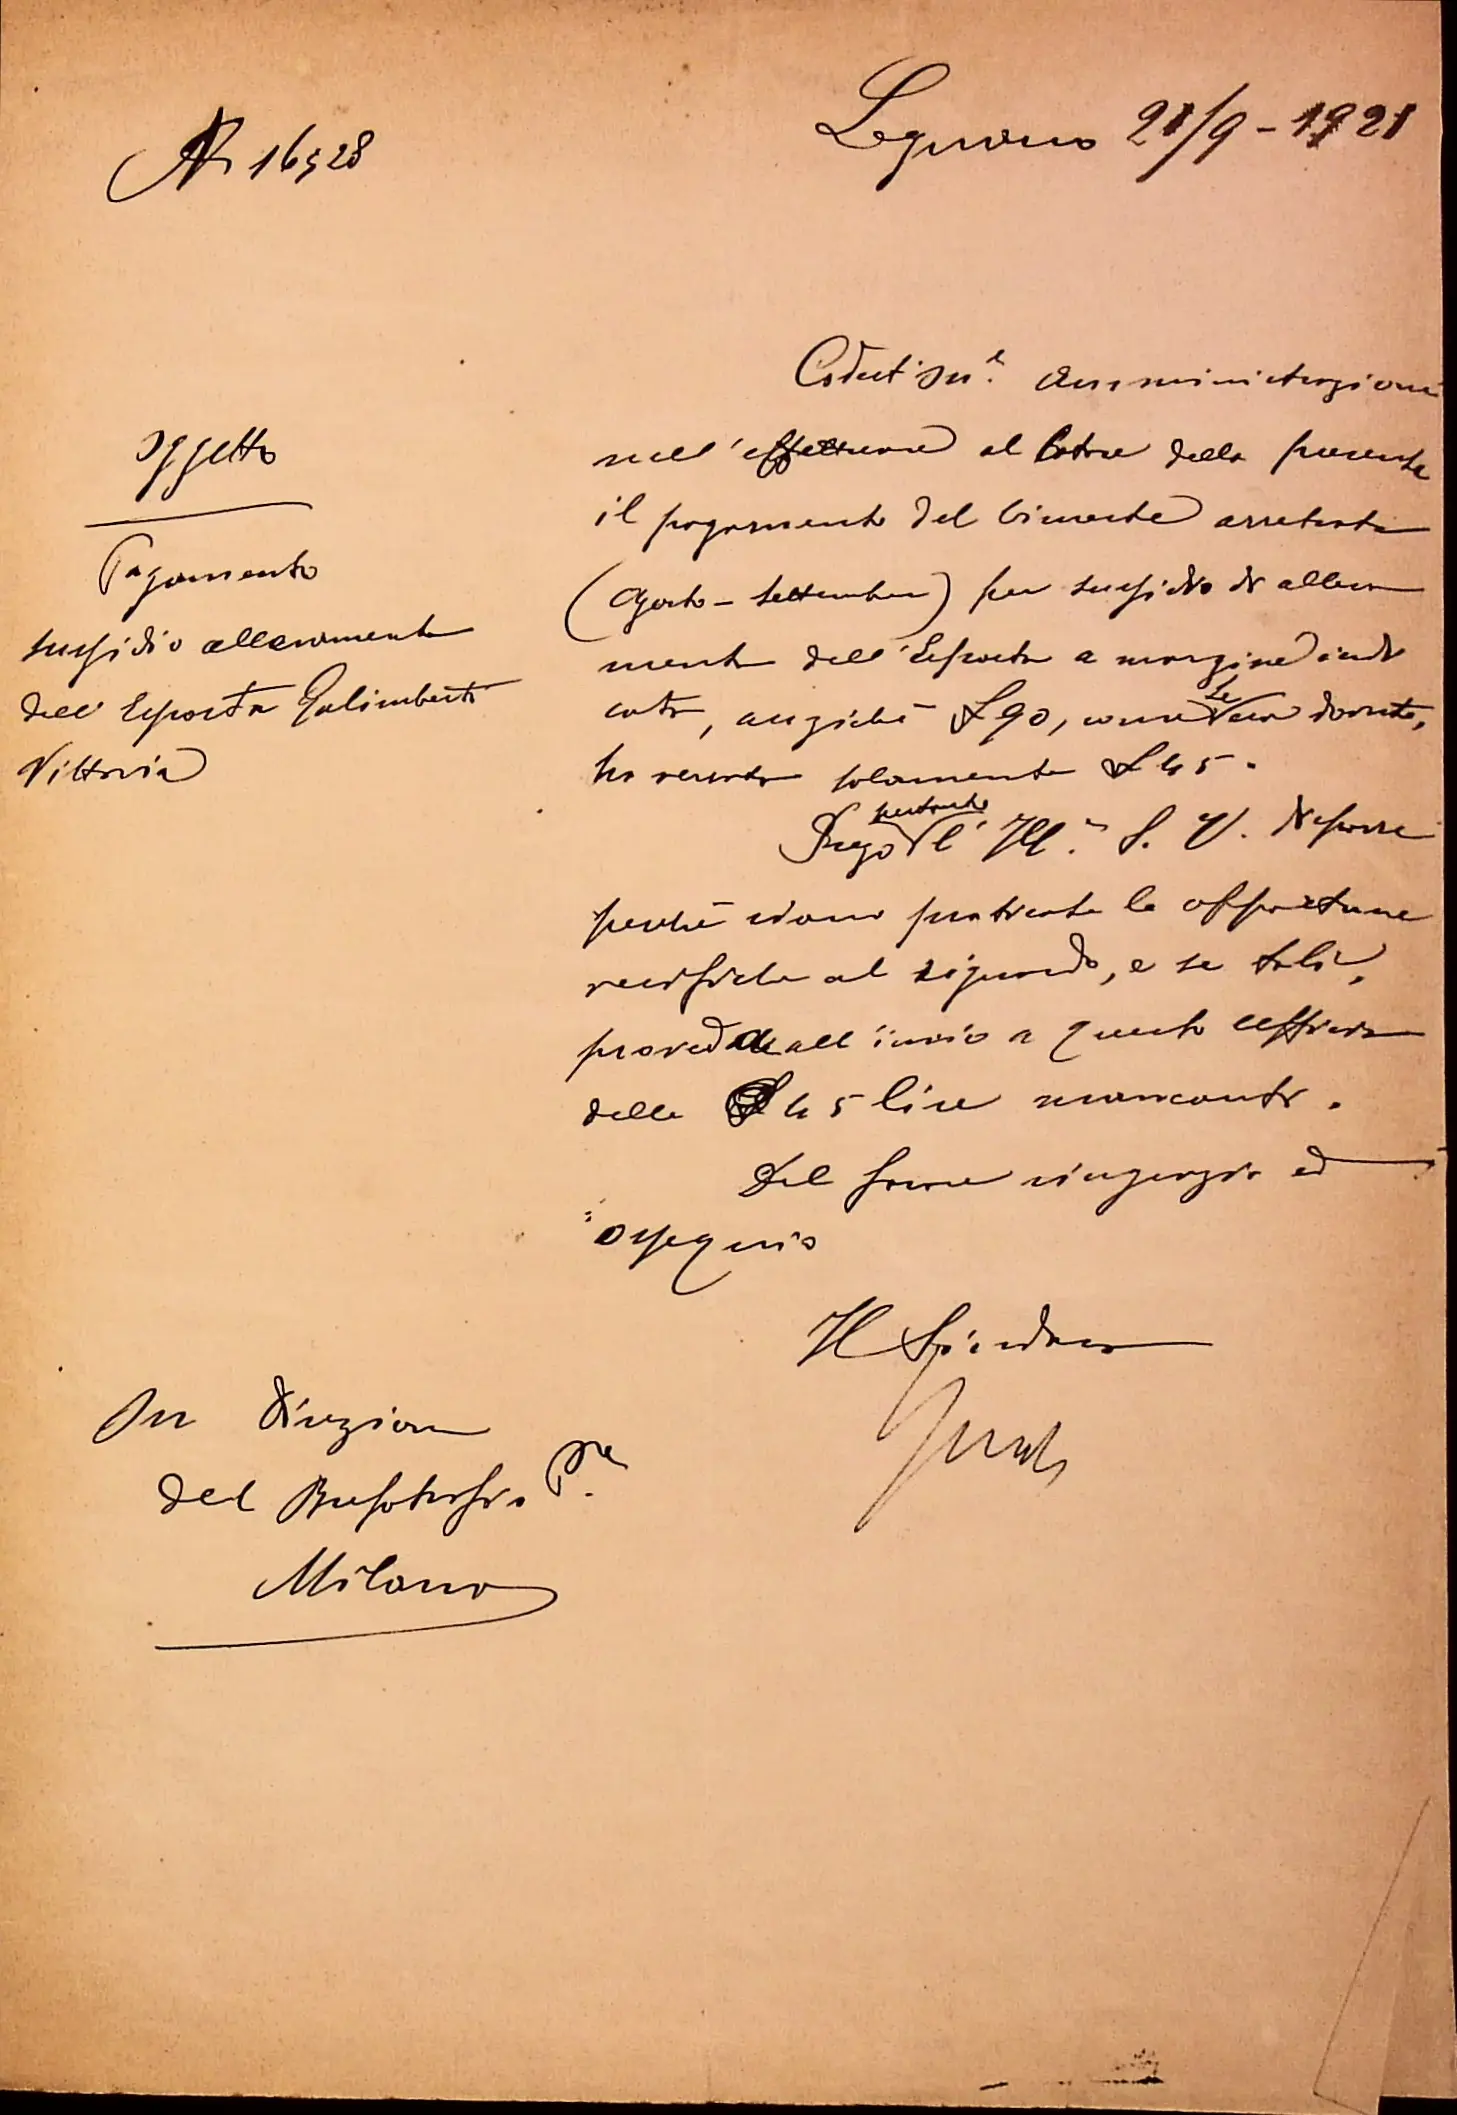 Legnano 21/9-1921
N 16528
oggetto
Pagamento
sussidio allevamento
dell'Esposta Galimberti
Vittoria
Codest On.e Amministrazione
nell'effettuare al latore della presente
il pagamento del bimestre arretrato
(Agosto - Settembre) per sussidio di alleva
mento dell'Esposta a margine indi
cata, anzichè £ 90, come le era dovuto,
ha versato solamente £ 45.
Prego pertanto l'Ill.a S. V. disporre
perchè siano praticate le opportune
verifiche al riguardo, e se tali,
provveda all'invio a questo Ufficio
delle 45 lire mancanti.
Del favore ringrazio ed
ossequio
Il Sindaco
On Direzione
del Brefotrofio P.le
Milano